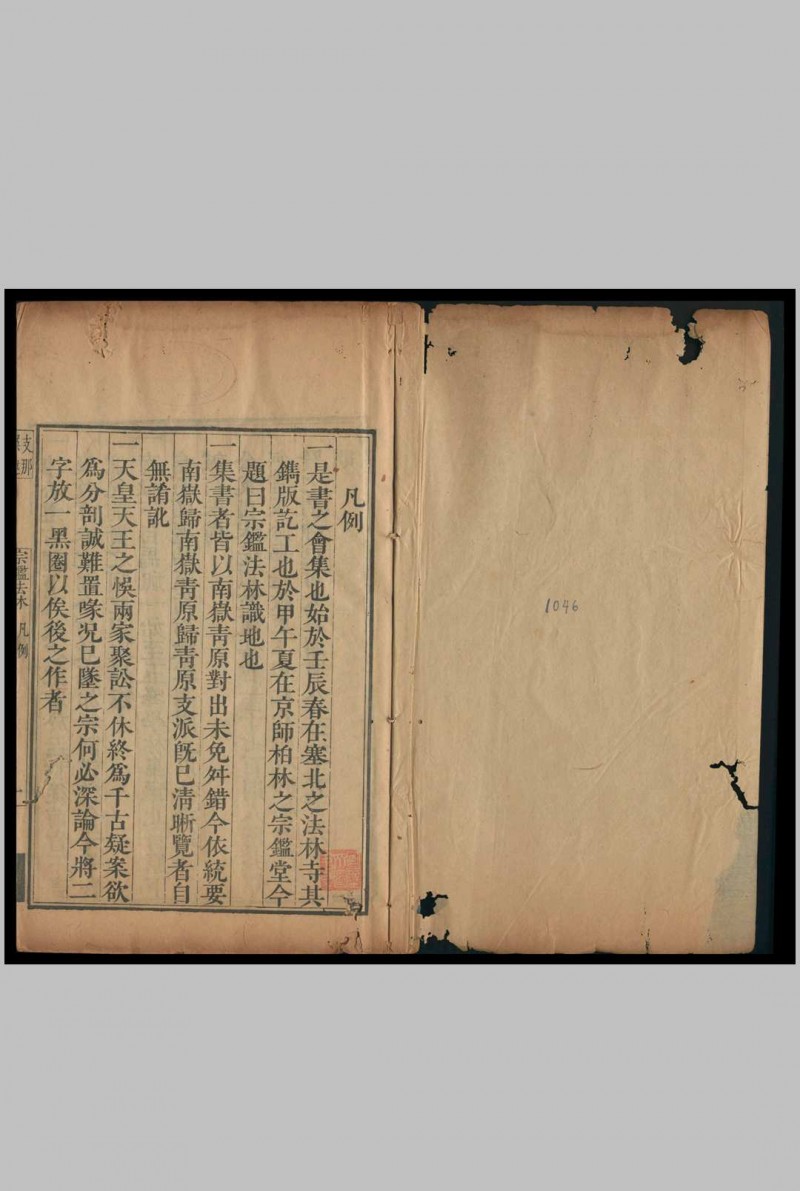 凡例
一是書之會集也始於壬辰春在塞北之法林寺其
鐫版訖工也於甲午夏在京師柏林之宗鑑堂今
題曰宗鑑法林識地也
一集書者皆以南嶽青原對出未免舛錯今依統要
南嶽歸南嶽青原歸青原支派旣已清晰覽者自
無誚訛
一天皇天王之悞兩家聚訟不休終爲千古疑案欲
爲分剖誠難置喙況已墜之宗何必深論今將二
字放一黑圈以俟後之作者
宗鑑法林 凡例
1046